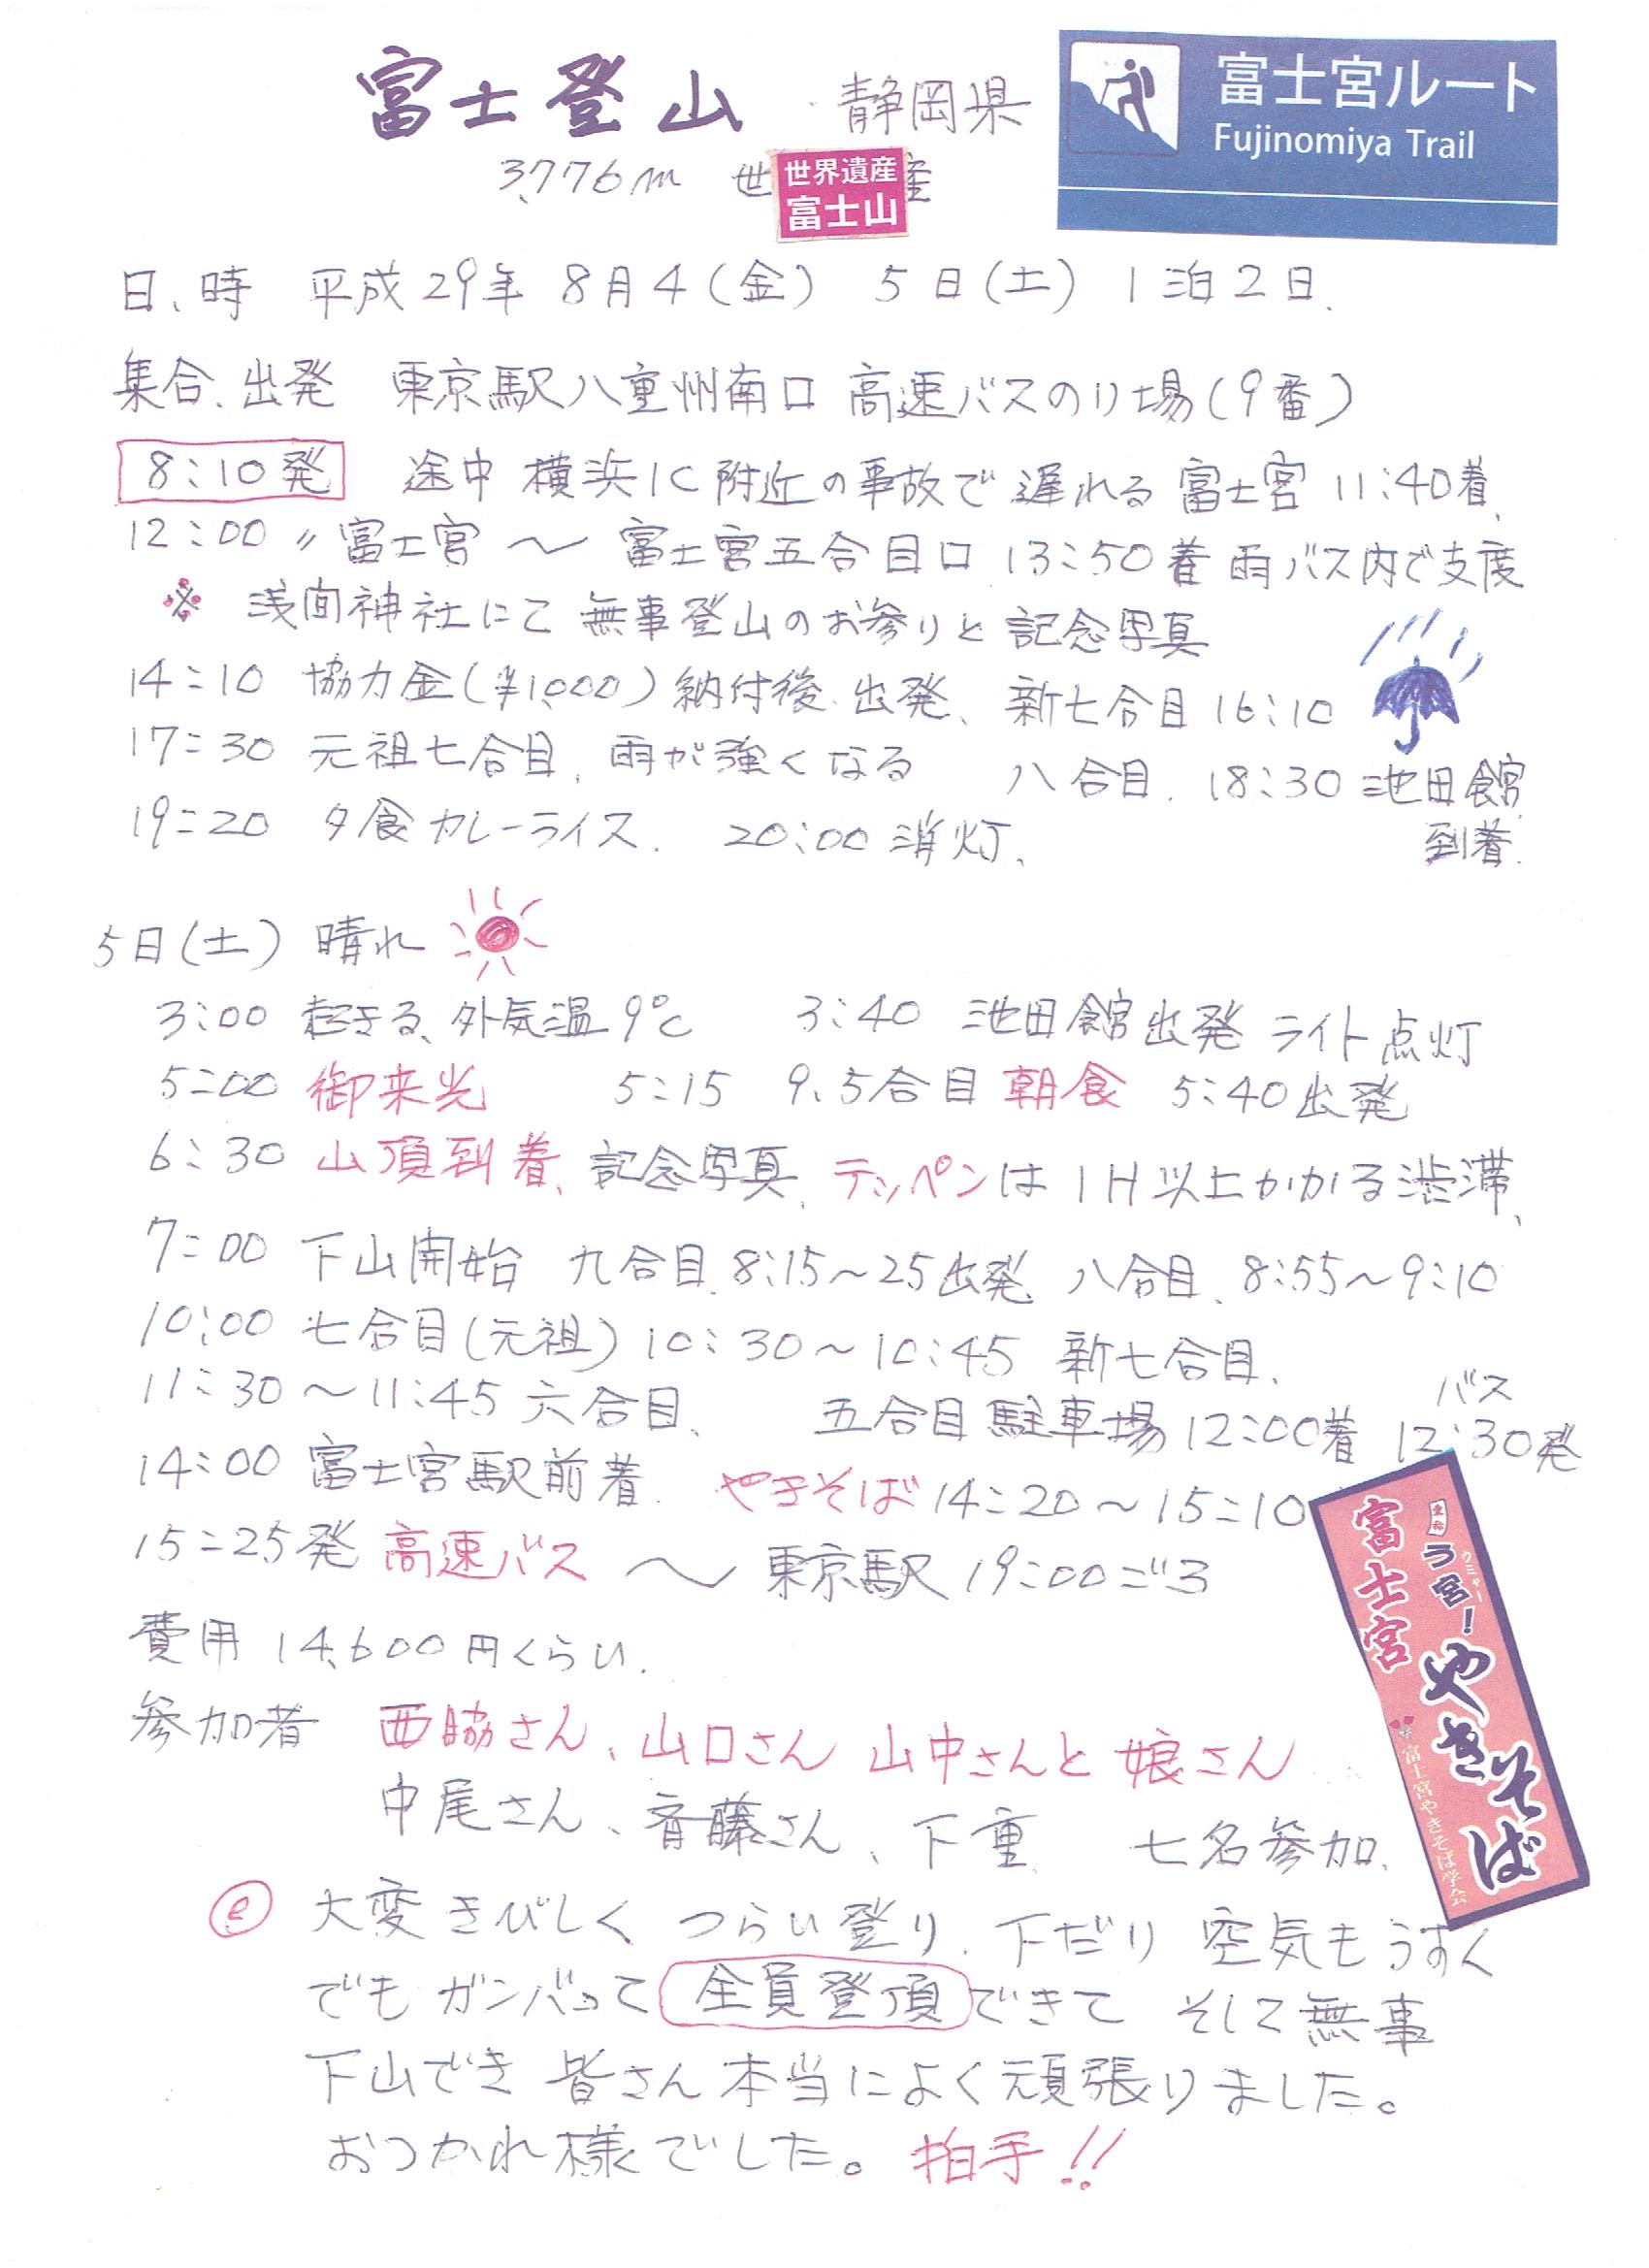 富士登山 静岡県
富士宮ルート
Fujinomiya Trail
3,776m 世 産
世界遺産
富士山
日、時 平成29年 8月4(金) 5日(土) 1泊2日.
集合、出発 東京駅八重州南口 高速バスのり場(9番)
8:10発 途中 横浜IC附近の事故で遅れる 富士宮 11:40着、
12:00 〃富士宮 〜 富士宮五合目口 13:50着 雨バス内で支度
※ 浅間神社にて 無事登山のお参りと 記念写真
14:10 協力金(¥1,000)納付後、出発、新七合目 16:10
17:30 元祖七合目、雨が強くなる 八合目、18:30 池田館
到着.
19:20 夕食カレーライス. 20:00消灯、
5日(土) 晴れ
3:00 起きる、外気温9℃ 3:40 池田館出発 ライト点灯
5:00 御来光 5:15 9.5合目 朝食 5:40出発
6:30 山頂到着、記念写真、テッペンは 1H以上かかる渋滞、
7:00 下山開始 九合目、8:15〜25出発 八合目、8:55〜9:10
10:00 七合目(元祖) 10:30〜10:45 新七合目、
11:30〜11:45 六合目、 五合目 駐車場 12:00着 バス 12:30発
14:00 富士宮駅前着. やきそば 14:20〜15:10
15:25発 高速バス 〜 東京駅 19:00ごろ
富士宮
う宮!
ウミャー
やきそば
富士宮やきそば学会
費用 14,600円くらい.
参加者 西脇さん、山口さん 山中さんと 娘さん
中尾さん、斉藤さん、下重 七名参加.
e 大変きびしく つらい登り、下だり 空気もうすく
でも ガンバって 全員登頂できて そして無事
下山でき 皆さん本当によく頑張りました。
おつかれ様でした。拍手!!